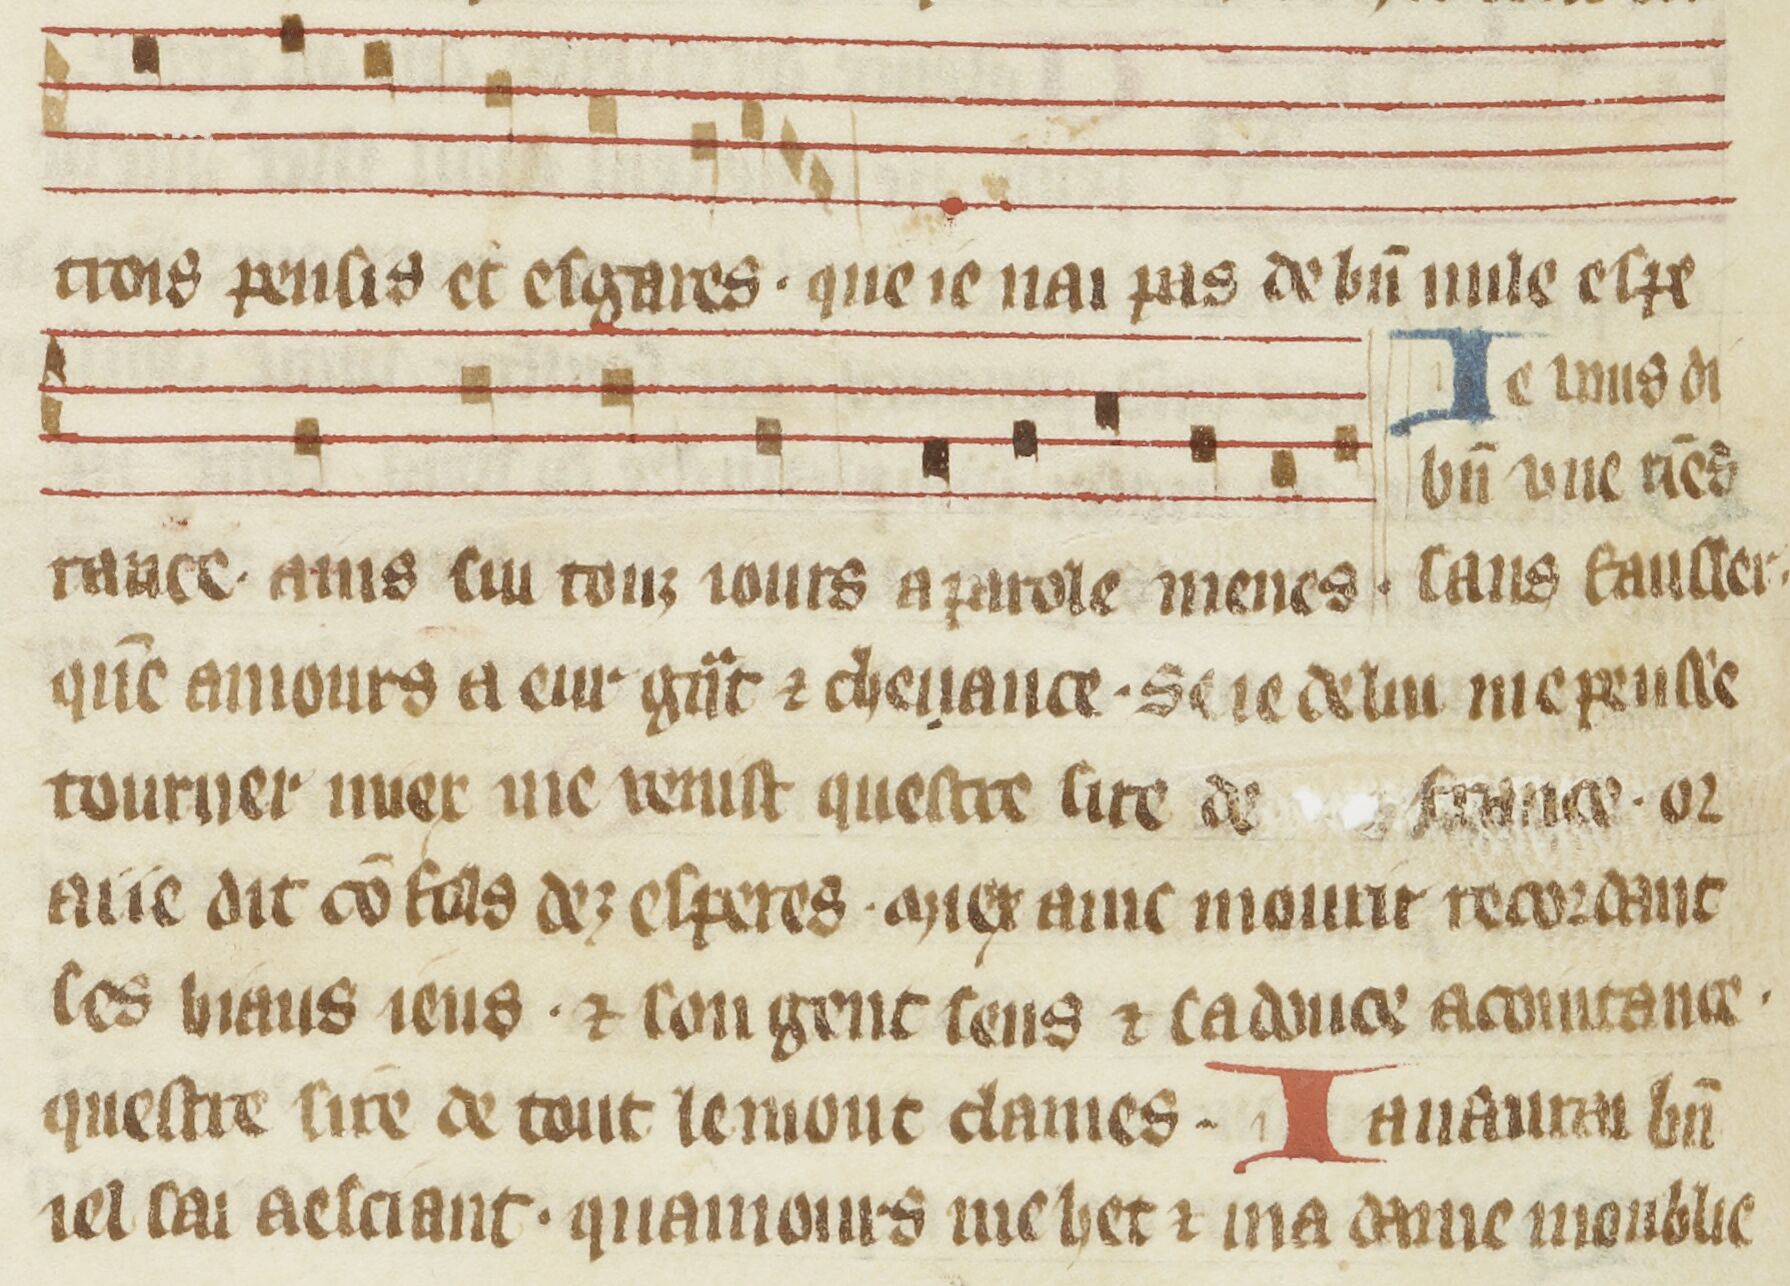 trois pensis et esgares · que ie nai pas de bn̄ nule espe
Ie vous di
bn̄ vne riēs
rance · ains sui touz iours a parole menes · sans fausser ·
qn̄c amours a eur gn̄t ⁊ cheuance · Se ie de lui me peusse
tourner miex me venist questre sire de france · or
aiie dit cō fols dez esperes · Miex ainc mourir recordant
ses biaus ieus · ⁊ son gent sens ⁊ sa douce acointance ·
questre sire de tout le mont clames · Ia n aurai bn̄
iel sai a esciant · quamours me het ⁊ ma dame moublie